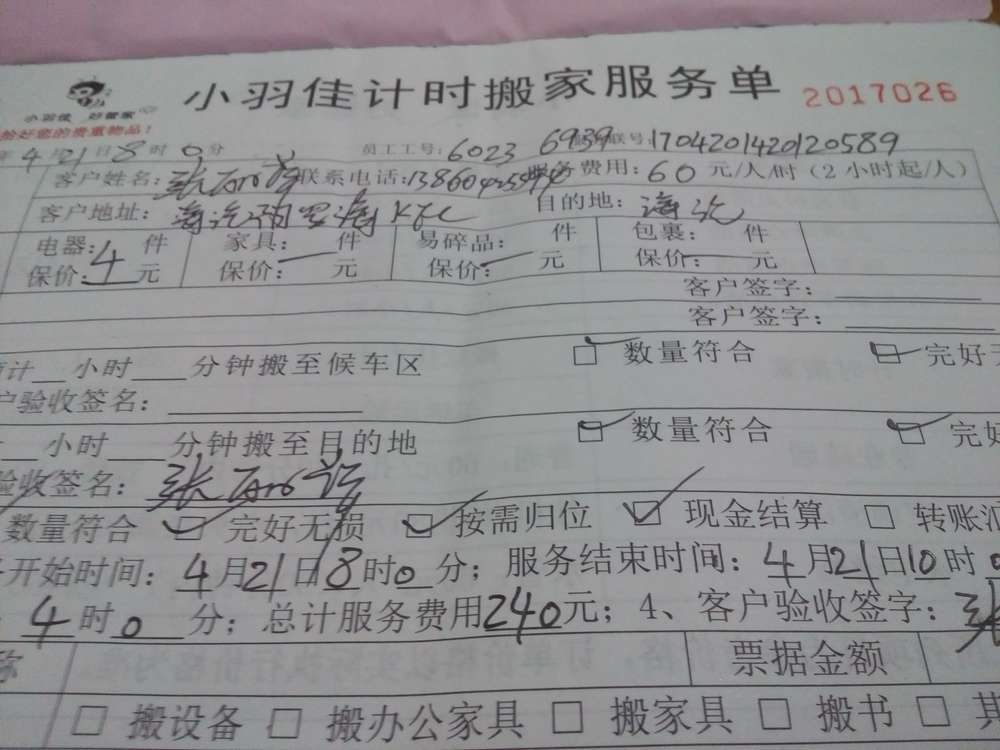 小羽佳计时搬家服务单 2017026
小羽佳 好管家
给好您的贵重物品!
年4月21日8时0分 员工工号:6023 6939 联号:1704201420120589
客户姓名:张 联系电话: 服务费用:60元/人/时(2小时起/人)
客户地址:海沧阿罗海KFC 目的地:海沧
电器:4件 家具:一件 易碎品:一件 包裹:一件
保价: 元 保价: 元 保价: 元 保价: 元
客户签字:
客户签字:
计__小时___分钟搬至候车区 □ 数量符合 □ 完好无
户验收签名:
__小时___分钟搬至目的地 □ 数量符合 □ 完好
验收签名:张
数量符合 □ 完好无损 □ 按需归位 □ 现金结算 □ 转账汇
开始时间:4月21日8时0分;服务结束时间:4月21日10时0
4时0分;总计服务费用240元;4、客户验收签字:张
称 票据金额
□ 搬设备 □ 搬办公家具 □ 搬家具 □ 搬书 □ 其